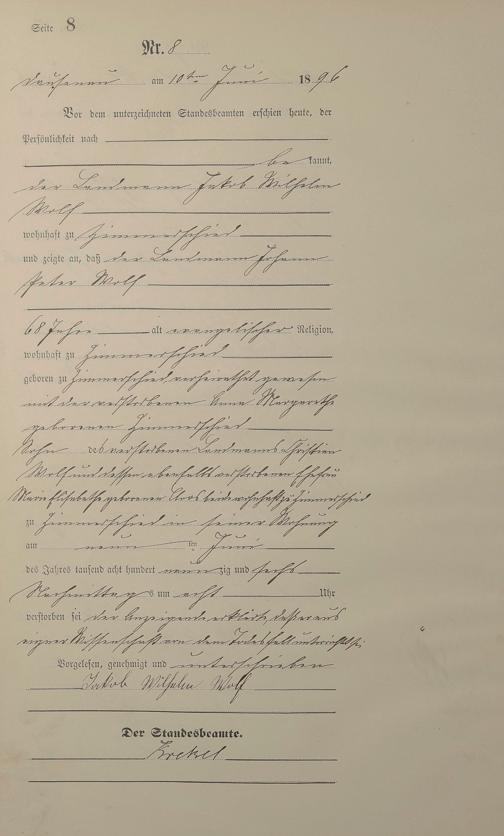 Seite 8
Nr. 8
Dausenau am 10ten Juni 1896
Vor dem unterzeichneten Standesbeamten erschien heute, der
Persönlichkeit nach
be kannt,
der Landmann Jakob Wilhelm
Wolf
wohnhaft zu Zimmerschied
und zeigte an, daß der Landmann Johann
Peter Wolf
68 Jahre alt evangelischer Religion,
wohnhaft zu Zimmerschied
geboren zu Zimmerschied verheirathet gewesen
mit der verstorbenen Anna Margarethe
geborenen Zimmerschied
Sohn des verstorbenen Landmanns Christian
Wolf und dessen ebenfalls verstorbenen Ehefrau
Marie Elisabethe geborenen beide wohnhaft zu Zimmerschied
zu Zimmerschied in seiner Wohnung
am neun ten Juni
des Jahres tausend acht hundert neun zig und sechs
Nachmittags um acht Uhr
verstorben sei der Anzeigende erklärte, daß er aus
eigner Wissenschaft von dem Todesfall unterrichtet sei
Vorgelesen, genehmigt und unterschrieben
Jakob Wilhelm Wolf
Der Standesbeamte.